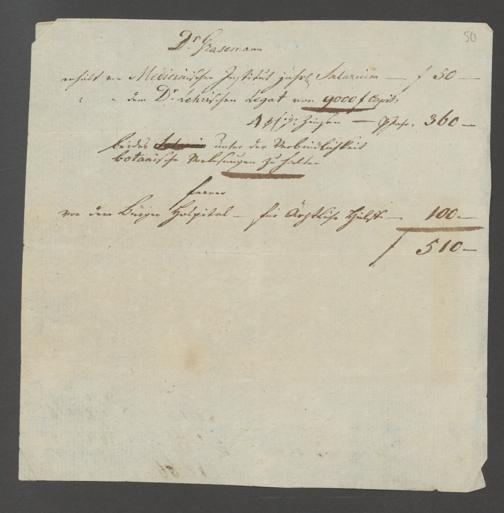 50
Dr Grasemann
erhält von Medicinischen Institut jährl. Salarium — f 50 —
" " dem Dr Lehrischen Legat von 9000 f Capit.
4 pC. Zinsen — 360 —
beides unter der Verbindlichkeit
botanische Vorlesungen zu halten
ferner
von dem Bürger Hospital — für Ärztliche Hülfe — 100 —
f 510 —